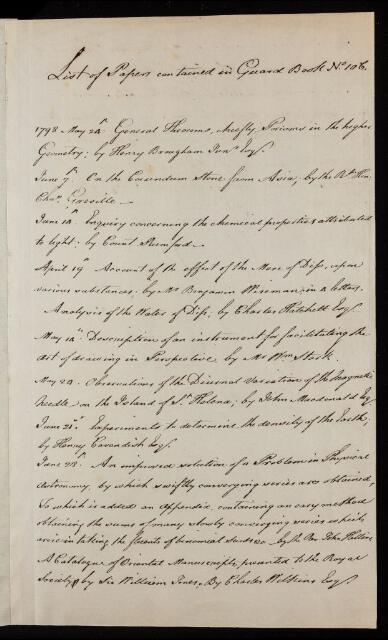 List of Papers contained in Guard Book No. 106.
1798 May 24th General Theorems, chiefly Porisms in the higher
Geometry; by Henry Brougham Junr. Esqr.
June 7th On the Corundum Stone from Asia; by the Rt. Hon.
Chas. Greville
June 14th Enquiry concerning the chemical properties attributed
to light; by Count Rumford
April 19th Account of the effect of the Mere of Diss, upon
various substances. by Mr. Benjamin Wiseman, in 2 letters.
Analysis of the Water of Diss, by Charles Hatchett Esqr.
May 14th Description of an instrument for facilitating the
Art of drawing in Perspective by Mr. Wm.
May 24. Observations of the Diurnal Variation of the Magnetic
Needle on the Island of St. Helena; by John Macdonald Esqr.
June 21st Experiments to determine the density of the Earth;
by Henry Cavendish Esqr.
June 28th An improved solution of a Problem in Physical
Astronomy, by which swiftly converging series are obtained,
To which is added an Appendix, containing an easy method
obtaining the sums of many slowly converging series which
arise in taking the fluents of binomial surds &c. by the Rev. John Hellins
A Catalogue of Oriental Manuscripts, presented to the Royal
Society by Sir William Jones, By Charles Wilkins Esqr.